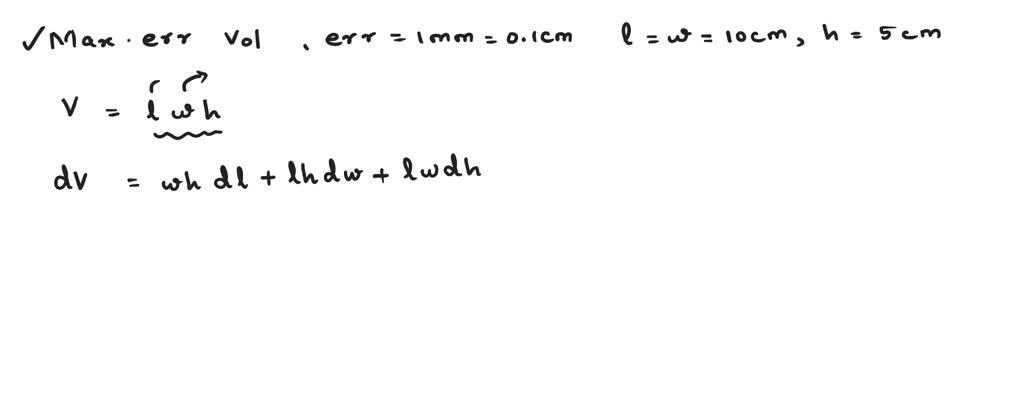 ✓Max. err Vol , err = 1mm = 0.1cm l = w = 10cm, h = 5cm
V = l w h
dv = wh dl + lh dw + lw dh